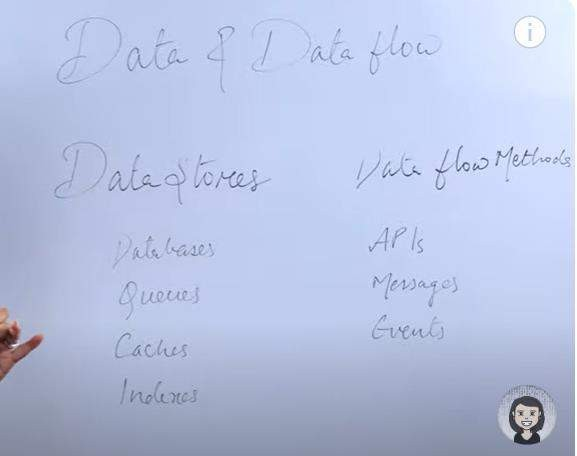 Data & Data flow
Data Stores
Databases
Queues
Caches
Indexes
Data flow Methods
APIs
Messages
Events
i